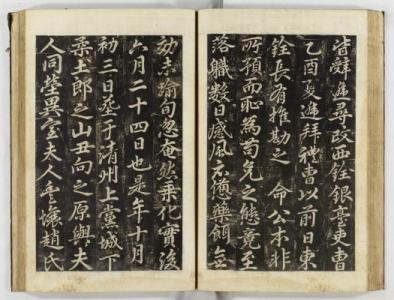 皆辭焉尋改西銓銀臺吏曹
乙酉夏進拜禮曹以前日東
銓長有推勘之 命公本非
所預而恥為苟免之態竟至
落職數日感風 憊藥餌
效 踰旬忽奄然乘化實後
六月二十四日也是年十月
初三日葬于清州上黨城下
桑土郎之山丑向之原與夫
人同塋異室夫人豊壤趙氏